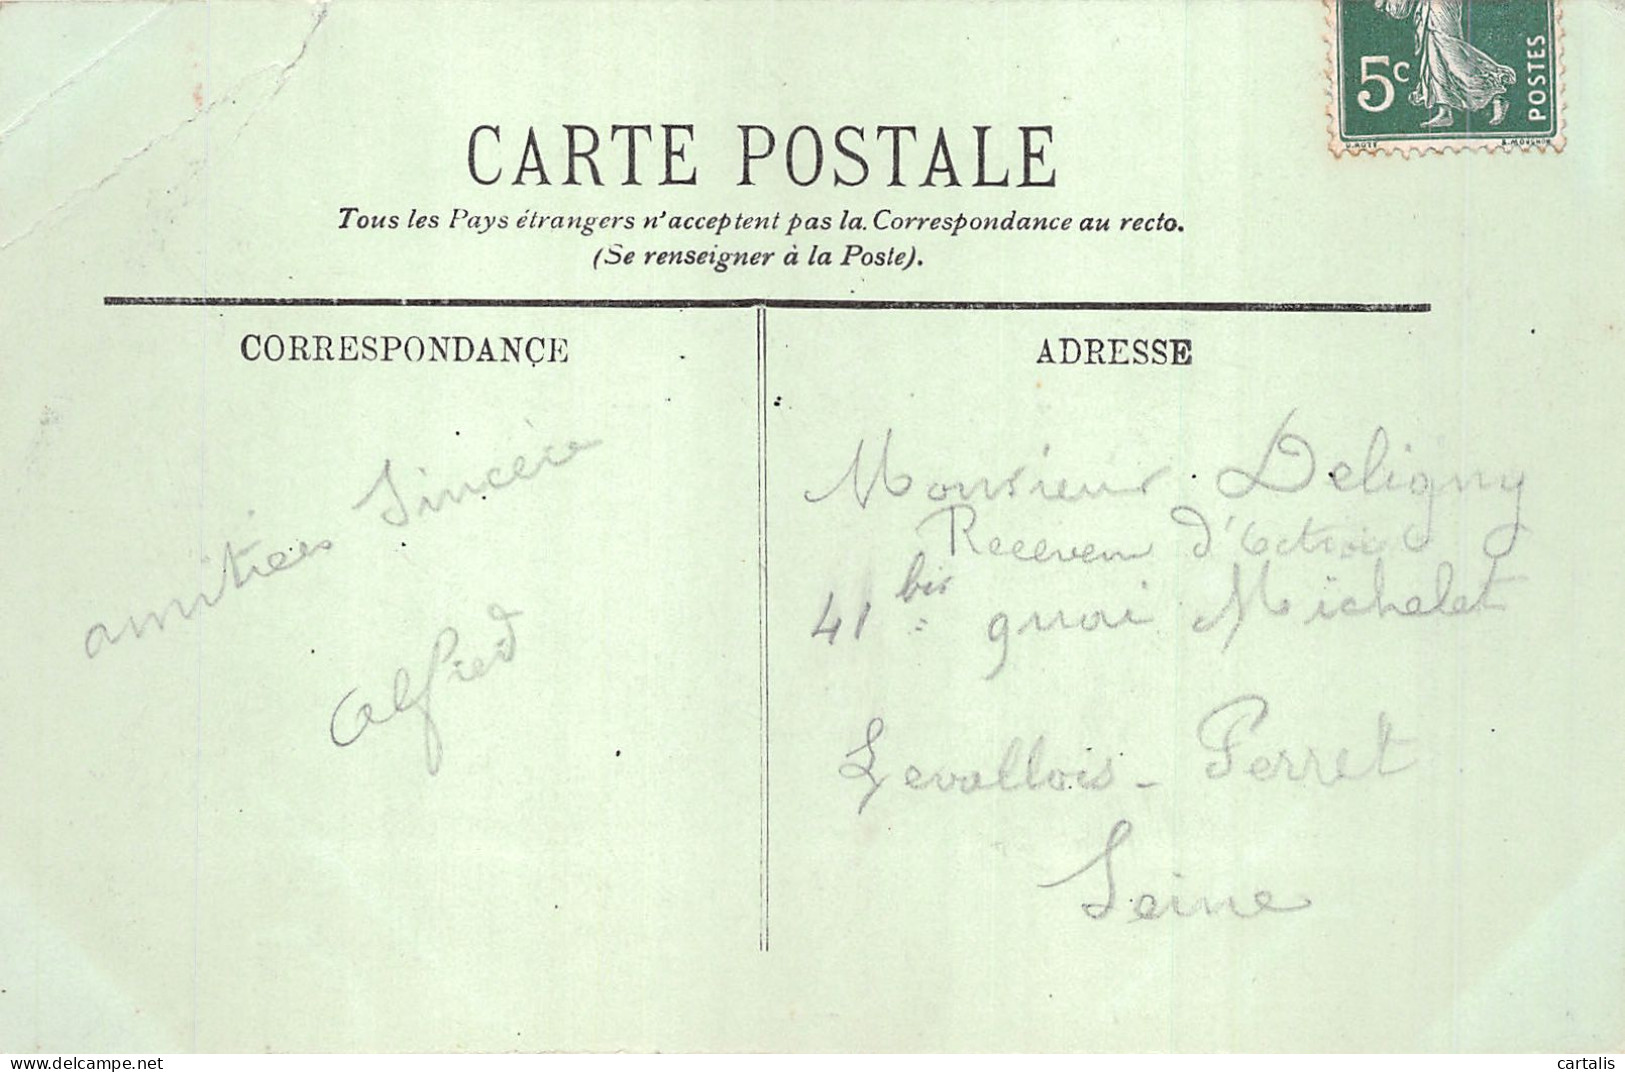 5c
POSTES
CARTE POSTALE
Tous les Pays étrangers n'acceptent pas la Correspondance au recto.
(Se renseigner à la Poste).
CORRESPONDANCE
amitiées Sincère
Alfred
ADRESSE
Monsieur Deligny
Receveur d'Octroi
41 bis quai Michelet
Levallois - Perret
Seine
delcampe.net
cartalis